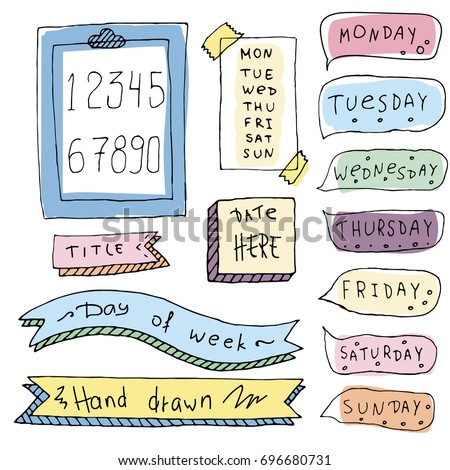 12345
67890
MON
TUE
WED
THU
FRI
SAT
SUN
MONDAY
TUESDAY
WEDNESDAY
THURSDAY
FRIDAY
SATURDAY
SUNDAY
DATE
HERE
TITLE
Day of week
Hand drawn
shutterstock
IMAGE ID: 696680731
www.shutterstock.com